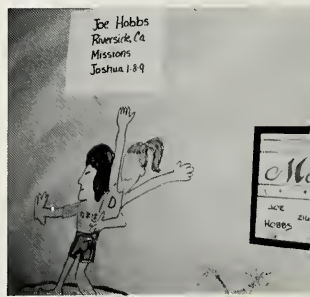 Joe Hobbs
Riverside, Ca
Missions
Joshua 1:8-9
JOE
HOBBS